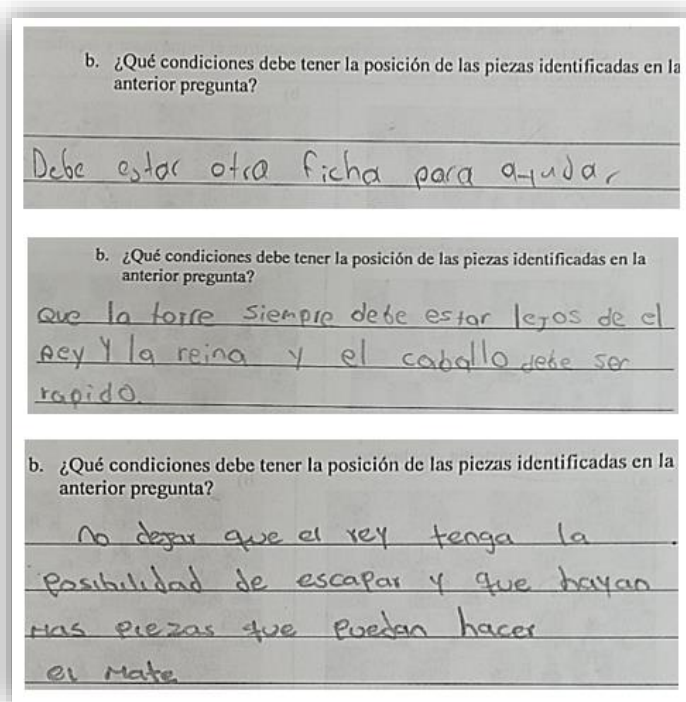 b. ¿Qué condiciones debe tener la posición de las piezas identificadas en la
anterior pregunta?
Debe estar otra ficha para ayudar
b. ¿Qué condiciones debe tener la posición de las piezas identificadas en la
anterior pregunta?
Que la torre siempre debe estar lejos de el
Rey y la reina y el caballo debe ser
rapido.
b. ¿Qué condiciones debe tener la posición de las piezas identificadas en la
anterior pregunta?
No dejar que el rey tenga la
posibilidad de escapar y que hayan
mas piezas que puedan hacer
el mate